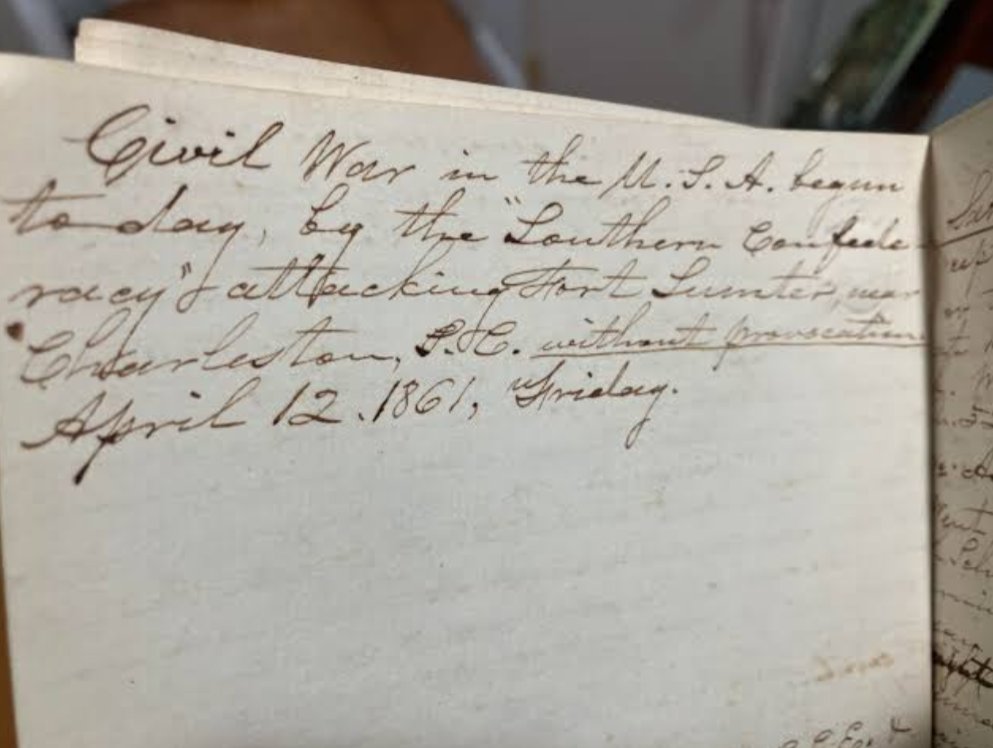 Civil War in the U.S.A. begun
to-day, by the "Southern Confede
racy" attacking Fort Sumter, near
Charleston, S.C. without provocation
April 12.1861, Friday.